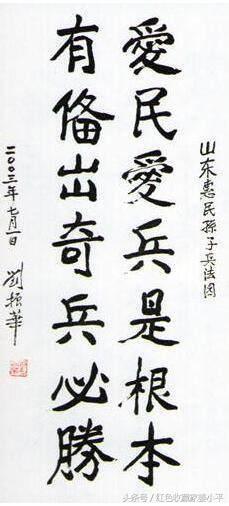 山东惠民孫子兵法园
愛民愛兵是根本
有俻出奇兵必勝
二00三年七月一日
劉振華
头条号/红色收藏家姜小平